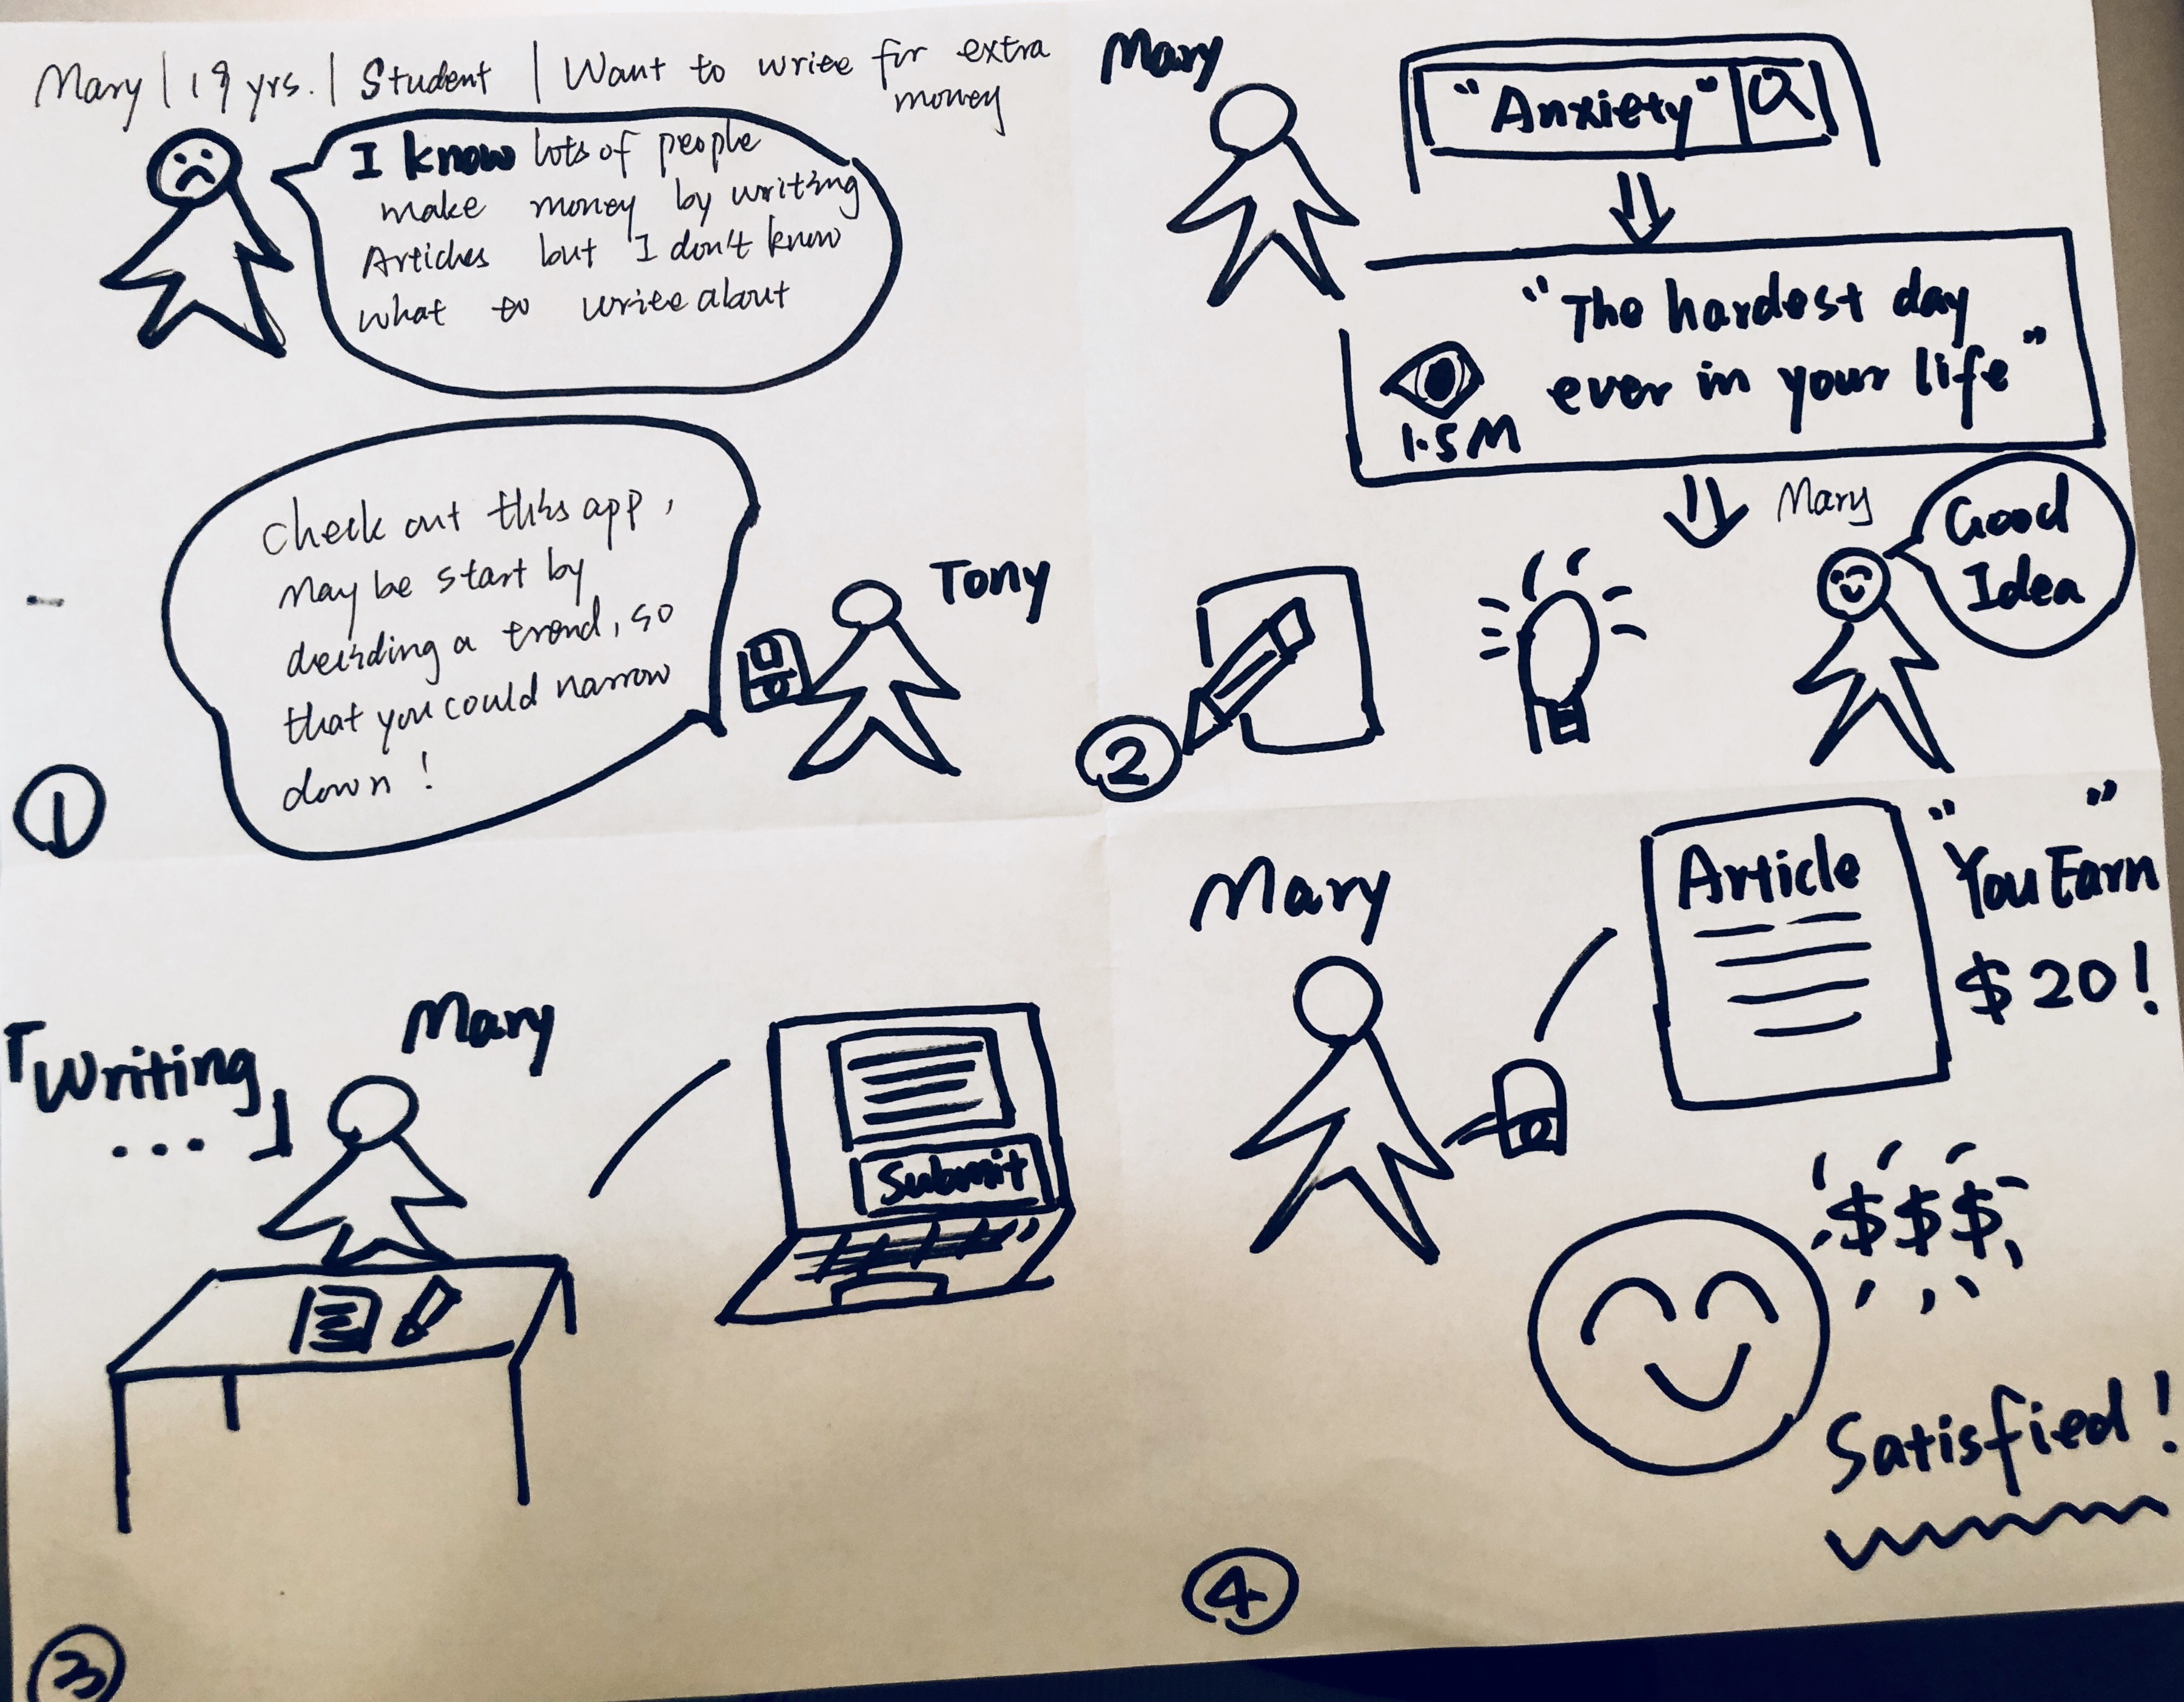 Mary | 19 yrs. | Student | Want to write for extra
money
I know lots of people
make money by writing
Articles but I don't know
what to write about
check out this app,
May be start by
deciding a trend, so
that you could narrow
down!
Tony
1
Mary
"Anxiety"
"The hardest day
ever in your life"
1.5M
Mary
Good
Idea
2
「Writing
...」
Mary
Submit
3
Mary
Article
"You Earn
$20!"
$$$
Satisfied!
4